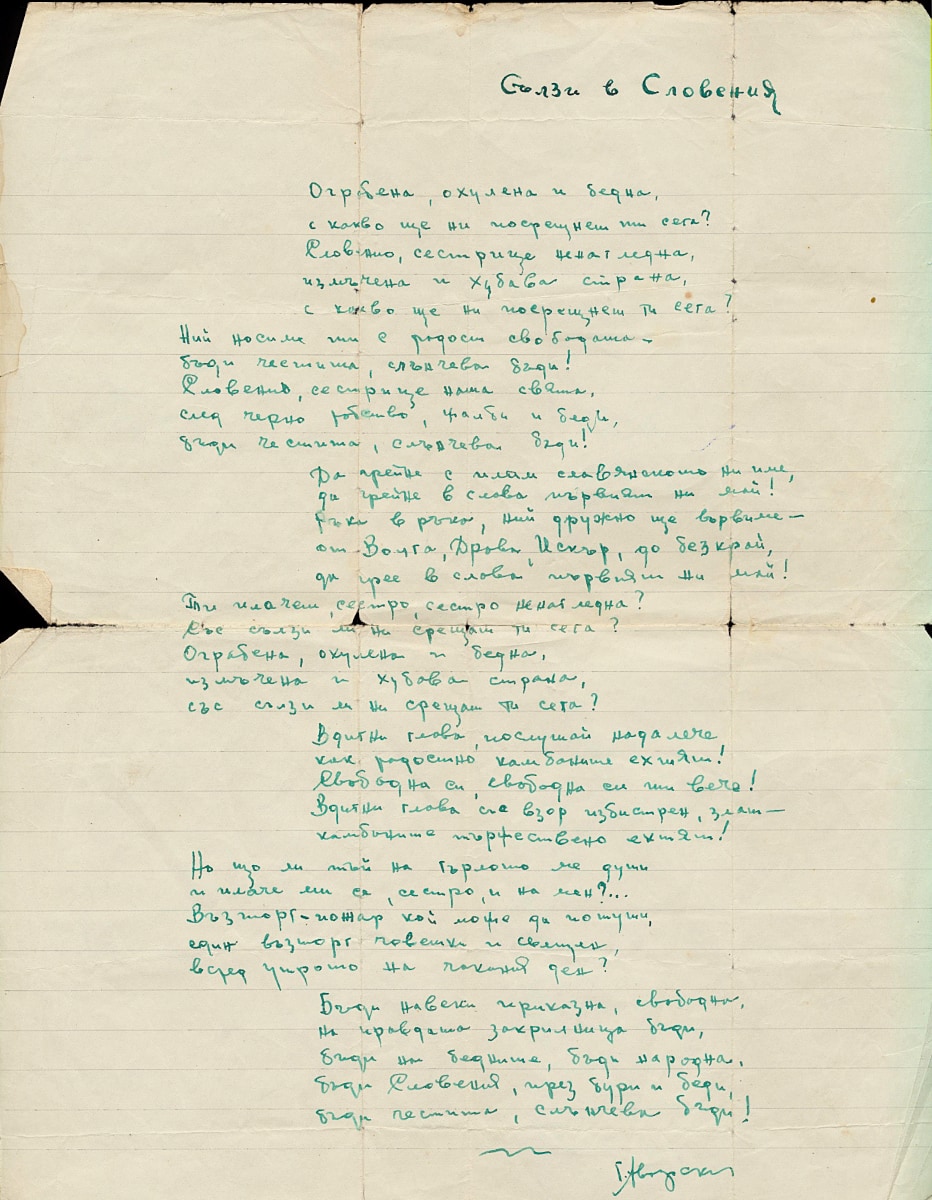 Сълзи в Словения
Ограбена, охулена и бедна,
с какво ще ни посрещнеш ти сега?
Словенио, сестрице ненагледна,
измъчена и хубава страна,
с какво ще ни посрещнеш ти сега?
Ний носиме ти с радост свободата –
бъди честита, слънчева бъди!
Словения, сестрице наша свята,
след черно робство, жалби и беди,
бъди честита, слънчева бъди!
Да грейне с плам славянското ни име,
да грейне в слава първият ни май!
Ръка в ръка, ний дружно ще вървиме –
от Волга, Драва, Искър, до безкрай,
да грее в слава първият ни май!
Ти плачеш, сестро, сестро ненагледна?
Със сълзи ли ни срещаш ти сега?
Ограбена, охулена и бедна,
измъчена и хубава страна,
със сълзи ли ни срещаш ти сега?
Вдигни глава, послушай надалече
как радостно камбаните ехтят!
Свободна си, свободна си ти вече!
Вдигни глава със взор избистрен, злат –
камбаните тържествено ехтят!
Но що ли тъй на гърлото ме души
и плаче ми се, сестро, и на мен?...
Възторг-пожар кой може да потуши,
един възторг човешки и свещен,
всред утрото на чакания ден?
Бъди навеки приказна, свободна,
на правдата закрилница бъди,
бъди на бедните, бъди народна,
бъди Словения, през бури и беди,
бъди честита, слънчева бъди!